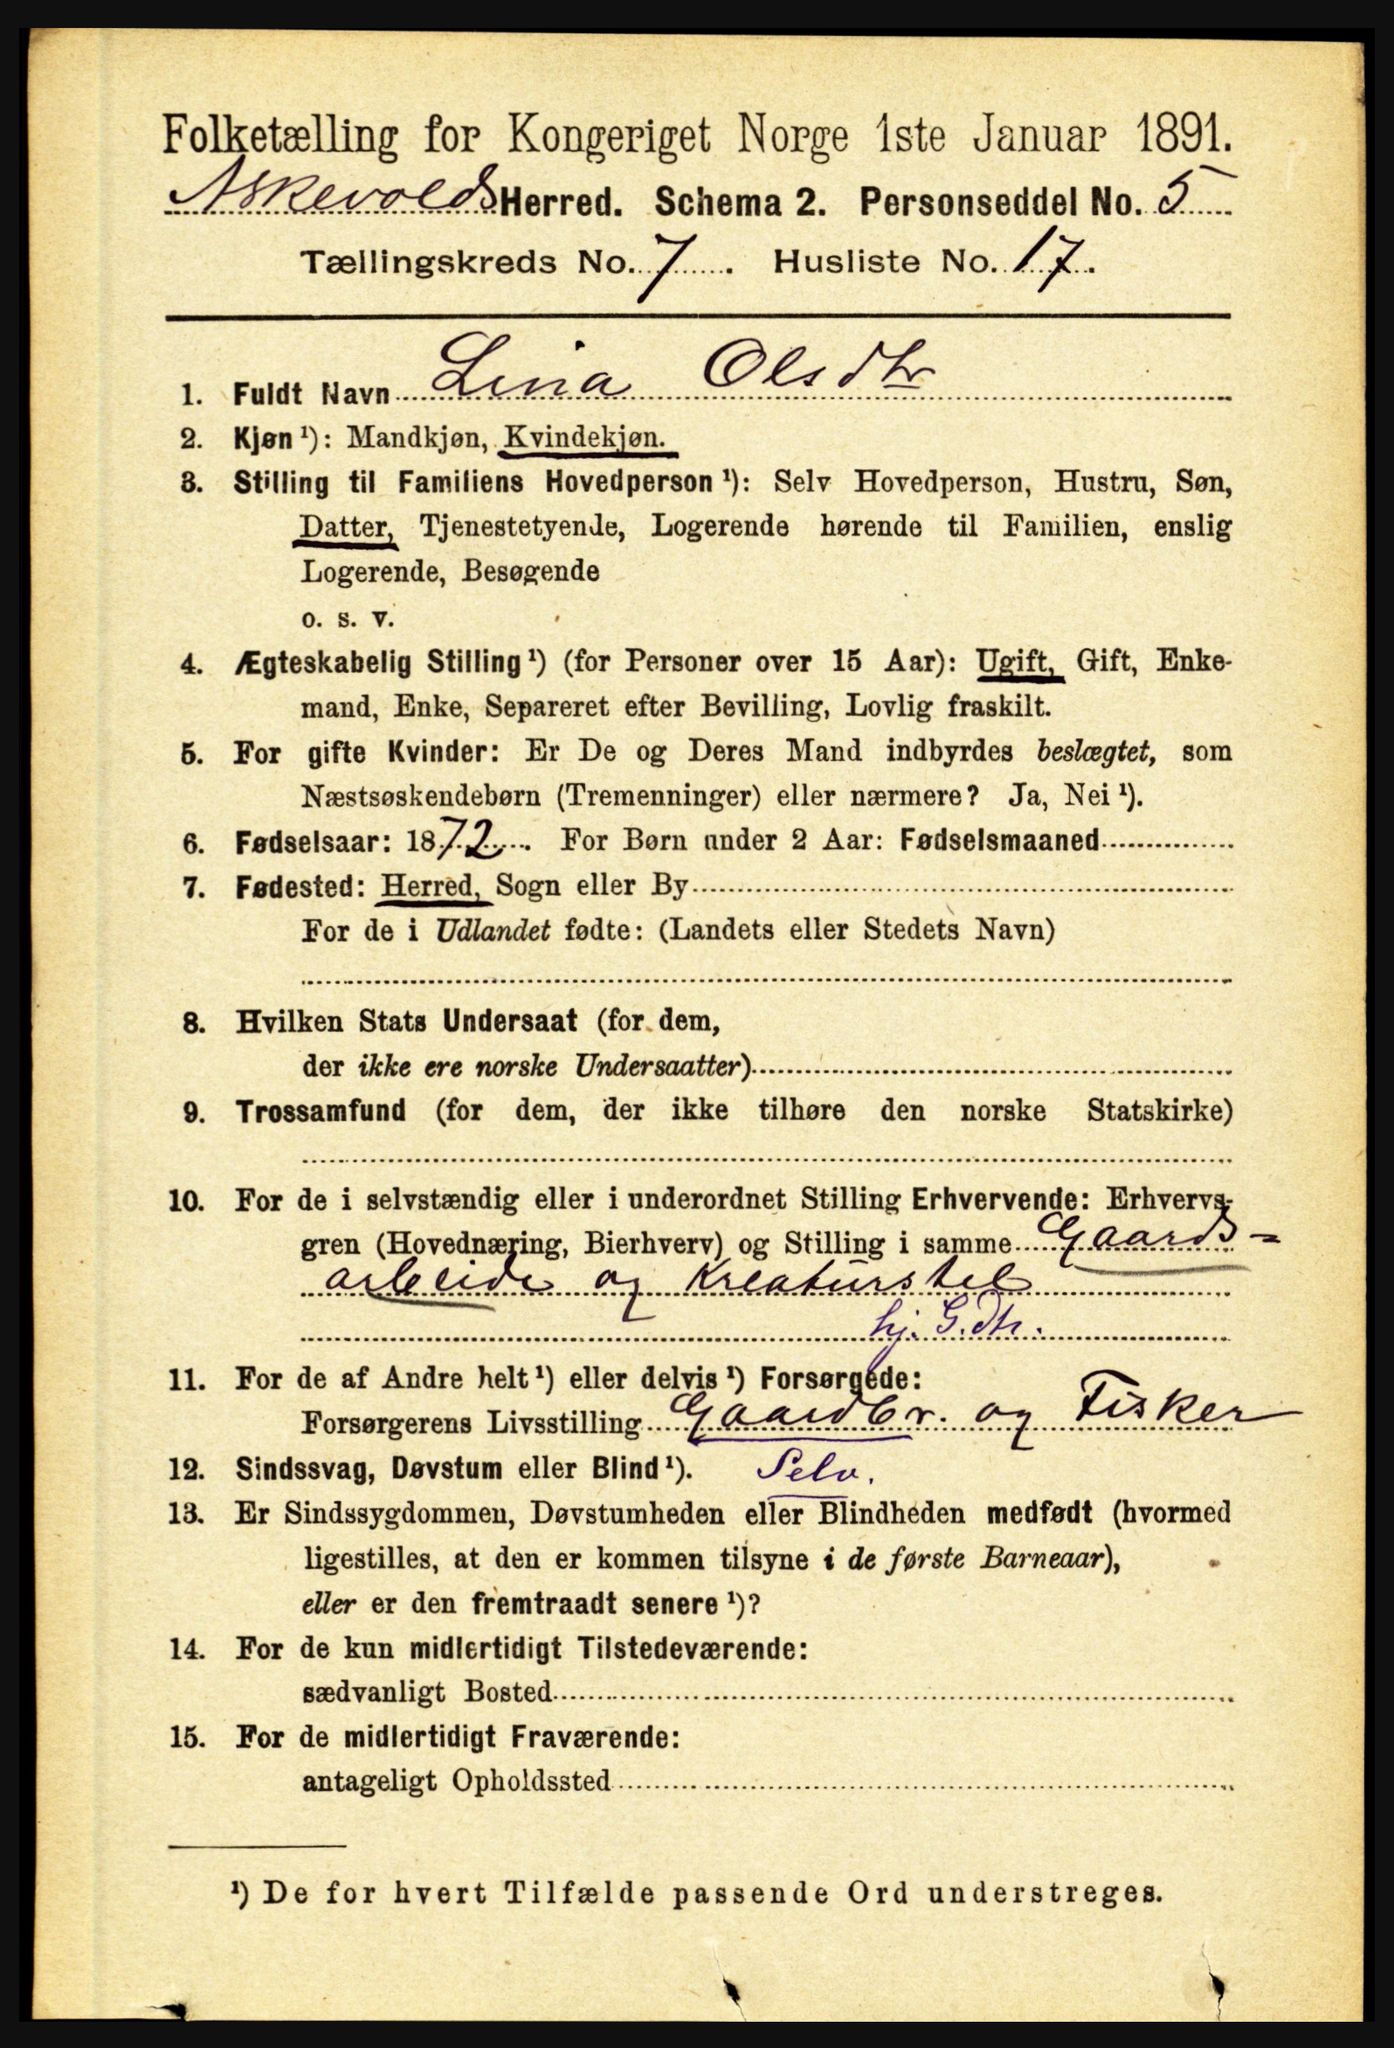 Folketælling for Kongeriget Norge 1ste Januar 1891.
Askevolds Herred. Schema 2. Personseddel No. 5
Tællingskreds No. 7. Husliste No. 17.
1. Fuldt Navn Lina Olsdtr
2. Kjøn ¹): Mandkjøn, Kvindekjøn.
3. Stilling til Familiens Hovedperson ¹): Selv Hovedperson, Hustru, Søn,
Datter, Tjenestetyende, Logerende hørende til Familien, enslig
Logerende, Besøgende
o. s. v.
4. Ægteskabelig Stilling ¹) (for Personer over 15 Aar): Ugift, Gift, Enke-
mand, Enke, Separeret efter Bevilling, Lovlig fraskilt.
5. For gifte Kvinder: Er De og Deres Mand indbyrdes beslægtet, som
Næstsøskendebørn (Tremenninger) eller nærmere? Ja, Nei ¹).
6. Fødselsaar: 1872. For Børn under 2 Aar: Fødselsmaaned
7. Fødested: Herred, Sogn eller By
For de i Udlandet fødte: (Landets eller Stedets Navn)
8. Hvilken Stats Undersaat (for dem,
der ikke ere norske Undersaatter)
9. Trossamfund (for dem, der ikke tilhøre den norske Statskirke)
10. For de i selvstændig eller i underordnet Stilling Erhvervende: Erhvervs-
gren (Hovednæring, Bierhverv) og Stilling i samme Gaards-
arbeide og Kreaturstel
hj. G. dtr.
11. For de af Andre helt ¹) eller delvis ¹) Forsørgede:
Forsørgerens Livsstilling Gaardbr. og Fisker
12. Sindssvag, Døvstum eller Blind ¹). Selv.
13. Er Sindssygdommen, Døvstumheden eller Blindheden medfødt (hvormed
ligestilles, at den er kommen tilsyne i de første Barneaar),
eller er den fremtraadt senere ¹)?
14. For de kun midlertidigt Tilstedeværende:
sædvanligt Bosted
15. For de midlertidigt Fraværende:
antageligt Opholdssted
¹) De for hvert Tilfælde passende Ord understreges.